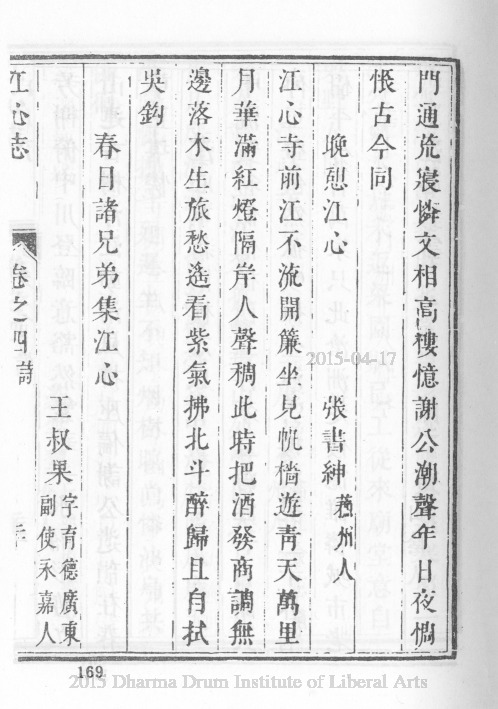 門通荒寢憐文相高樓憶謝公潮聲年日夜惆
悵古今同
晚憩江心
張書紳 蘇州人
江心寺前江不流開簾坐見帆檣遊青天萬里
月華滿紅燈隔岸人聲稠此時把酒發商謳無
邊落木生旅愁遙看紫氣拂北斗醉歸且自拭
吳鈎
春日諸兄弟集江心
王叔果 字育德廣東
副使永嘉人
江心志
卷之四詩
169
2015-04-17
2015 Dharma Drum Institute of Liberal Arts